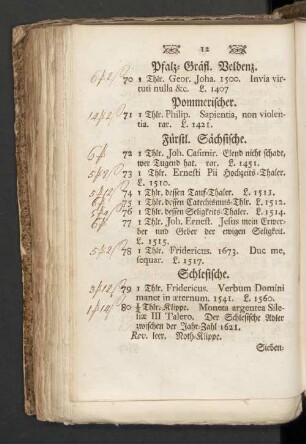 12
Pfalz-Gräfl. Veldenz.
70 1 Thlr. Geor. Joha. 1500. Invia vir-
tuti nulla &c. L. 1407
Pommerischer.
71 1 Thlr. Philip. Sapientia, non violen-
tia. rar. L. 1421.
Fürstl. Sächsische.
72 1 Thlr. Joh. Casimir. Elend nicht schadt,
wer Tugend hat. rar. L. 1451.
73 1 Thlr. Ernesti Pii Hochzeits-Thaler.
L. 1510.
74 1 Thlr. dessen Tauf-Thaler. L. 1513.
75 1 Thlr. dessen Catechismus-Thlr. L. 1512.
76 1 Thlr. dessen Seligkeits-Thaler. L. 1514.
77 1 Thlr. Joh. Ernest. Jesus mein Erwer-
ber und Geber der ewigen Seligkeit.
L. 1515.
78 1 Thlr. Fridericus. 1673. Duc me,
sequar. L. 1517.
Schlesische.
79 1 Thlr. Fridericus. Verbum Domini
manet in æternum. 1541. L. 1560.
80 Thlr. Klippe. Moneta argentea Sile-
siæ III Talero. Der Schlesische Adler
zwischen der Jahr-Zahl 1621.
Rev. leer. Noth-Klippe.
Sieben-